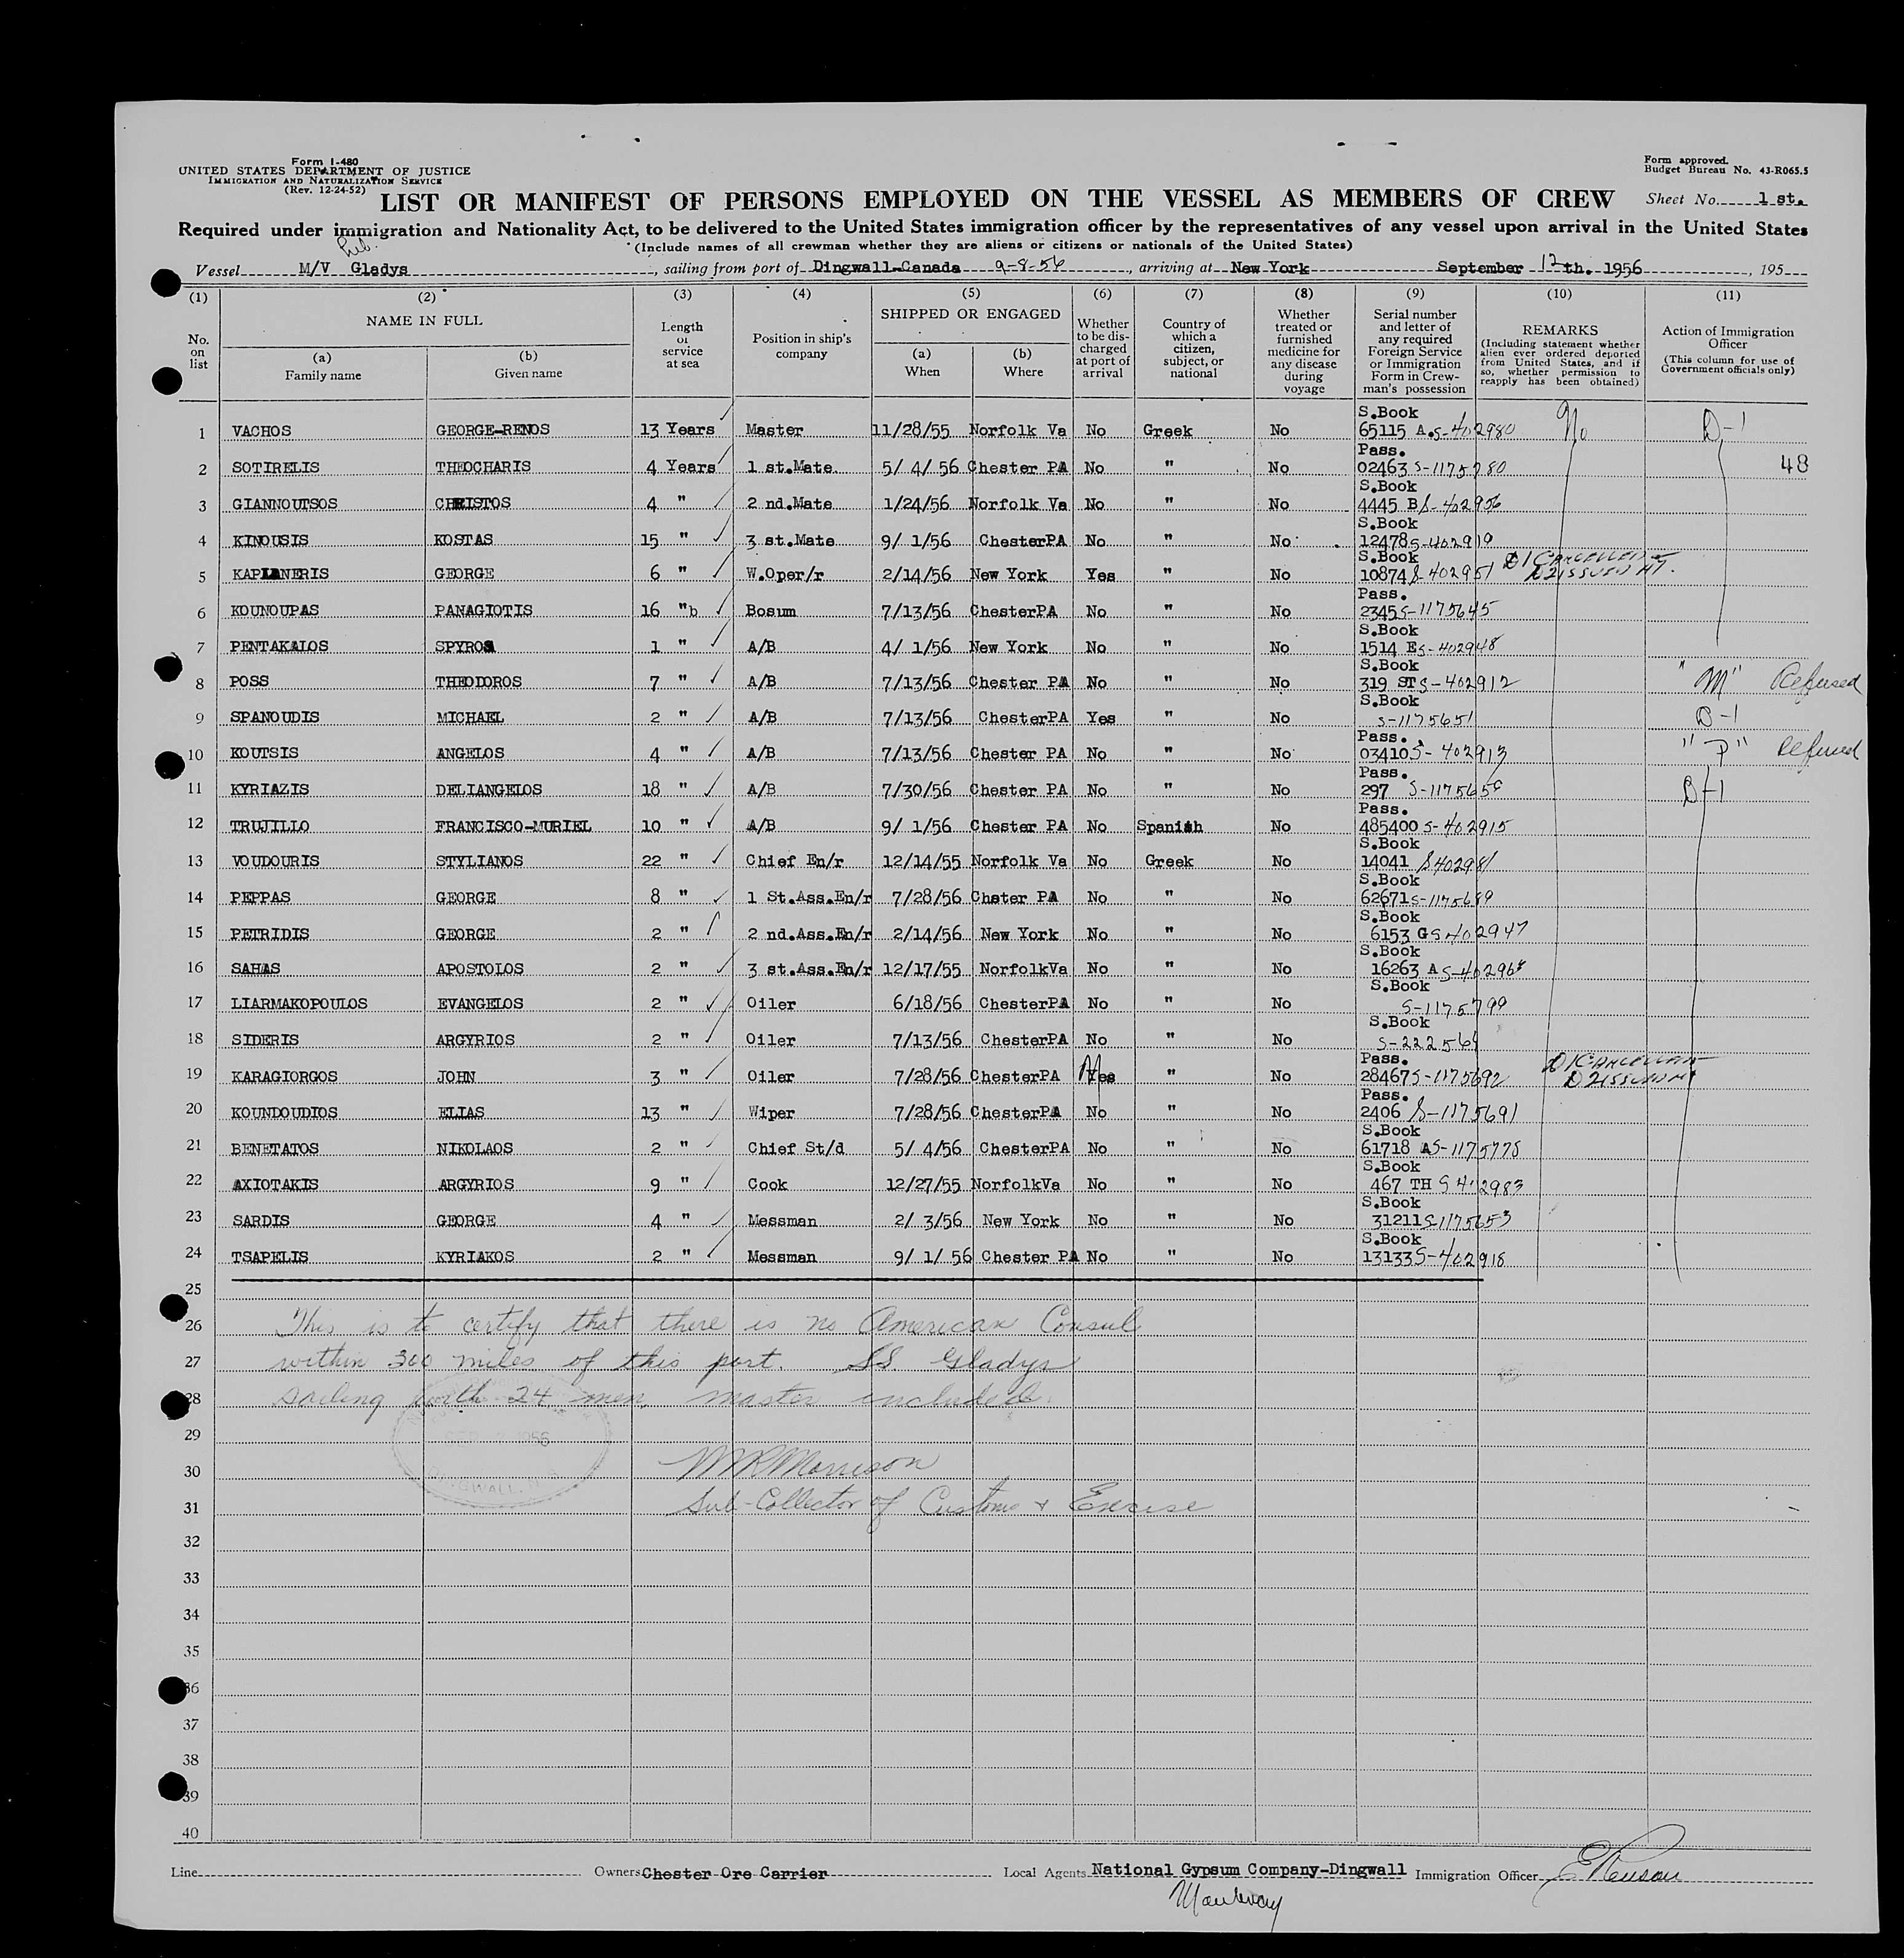 Form I-480
UNITED STATES DEPARTMENT OF JUSTICE
IMMIGRATION AND NATURALIZATION SERVICE
(Rev. 12-24-52)
Form approved.
Budget Bureau No. 43-R065.5
LIST OR MANIFEST OF PERSONS EMPLOYED ON THE VESSEL AS MEMBERS OF CREW
Sheet No. 1 st.
Required under immigration and Nationality Act, to be delivered to the United States immigration officer by the representatives of any vessel upon arrival in the United States
(Include names of all crewman whether they are aliens or citizens or nationals of the United States)
Lib.
Vessel M/V Gladys, sailing from port of Dingwall-Canada 9-8-56, arriving at New York September 12th. 1956, 195
(1) (2) (3) (4) (5) (6) (7) (8) (9) (10) (11)
No. on list
NAME IN FULL
(a) Family name
(b) Given name
Length of service at sea
Position in ship's company
SHIPPED OR ENGAGED
(a) When
(b) Where
Whether to be discharged at port of arrival
Country of which a citizen, subject, or national
Whether treated or furnished medicine for any disease during voyage
Serial number and letter of any required Foreign Service or Immigration Form in Crewman's possession
REMARKS
(Including statement whether alien ever ordered deported from United States, and if so, whether permission to reapply has been obtained)
Action of Immigration Officer
(This column for use of Government officials only)
1 VACHOS GEORGE-RENOS 13 Years Master 11/28/55 Norfolk Va No Greek No S.Book 65115 A. S-402980 No D-1
2 SOTIRELIS THEOCHARIS 4 Years 1 st.Mate 5/ 4/ 56 Chester PA No " No Pass. 02463 S-1175780 48
3 GIANNOUTSOS CHRISTOS 4 " 2 nd.Mate 1/24/56 Norfolk Va No " No S.Book 4445 B S-402956
4 KINOUSIS KOSTAS 15 " 3 st.Mate 9/ 1/56 ChesterPA No " No S.Book 12478 S-402919
5 KAPLANERIS GEORGE 6 " W.Oper/r 2/14/56 New York Yes " No S.Book 10874 S-402951 D1 CANCELLED D2 ISSUED
6 KOUNOUPAS PANAGIOTIS 16 "b Bosum 7/13/56 ChesterPA No " No Pass. 2345 S-1175645
7 PENTAKALOS SPYROS 1 " A/B 4/ 1/56 New York No " No S.Book 1514 E S-402948
8 POSS THEODOROS 7 " A/B 7/13/56 Chester PA No " No S.Book 319 ST S-402912 "M" Refused
9 SPANOUDIS MICHAEL 2 " A/B 7/13/56 ChesterPA Yes " No S.Book S-1175651 D-1
10 KOUTSIS ANGELOS 4 " A/B 7/13/56 Chester PA No " No Pass. 03410 S-402913 "P" Refused
11 KYRIAZIS DELIANGELOS 18 " A/B 7/30/56 Chester PA No " No Pass. 297 D-1
12 TRUJILLO FRANCISCO-MURIEL 10 " A/B 9/ 1/56 Chester PA No Spanish No Pass. 485400 S-402915
13 VOUDOURIS STYLIANOS 22 " Chief En/r 12/14/55 Norfolk Va No Greek No S.Book 14041 S402981
14 PEPPAS GEORGE 8 " 1 St.Ass.En/r 7/28/56 Chster PA No " No S.Book 62671 S-1175689
15 PETRIDIS GEORGE 2 " 2 nd.Ass.En/r 2/14/56 New York No " No S.Book 6153 G S-402947
16 SAHAS APOSTOLOS 2 " 3 st.Ass.En/r 12/17/55 NorfolkVa No " No S.Book 16263 A
17 LIARMAKOPOULOS EVANGELOS 2 " Oiler 6/18/56 ChesterPA No " No S.Book S-1175799
18 SIDERIS ARGYRIOS 2 " Oiler 7/13/56 ChesterPA No " No S.Book
19 KARAGIORGOS JOHN 3 " Oiler 7/28/56 ChesterPA Yes " No Pass. 28467 S-1175692 D1 CANCELLED D2 ISSUED
20 KOUNDOUDIOS ELIAS 13 " Wiper 7/28/56 ChesterPA No " No Pass. 2406 S-1175691
21 BENETATOS NIKOLAOS 2 " Chief St/d 5/ 4/56 ChesterPA No " No S.Book 61718 A S-1175778
22 AXIOTAKIS ARGYRIOS 9 " Cook 12/27/55 NorfolkVa No " No S.Book 467 TH S 402983
23 SARDIS GEORGE 4 " Messman 2/ 3/56 New York No " No S.Book 31211 S-1175653
24 TSAPELIS KYRIAKOS 2 " Messman 9/ 1/ 56 Chester PA No " No S.Book 13133 S-402918
25
26 This is to certify that there is no American Consul
27 within 300 miles of this port. SS Gladys
28 sailing with 24 men, master included.
29
30 Morrison
31 Sub-Collector of Customs & Excise
32
33
34
35
36
37
38
39
40
Line Owners Chester Ore Carrier Local Agents National Gypsum Company-Dingwall Immigration Officer